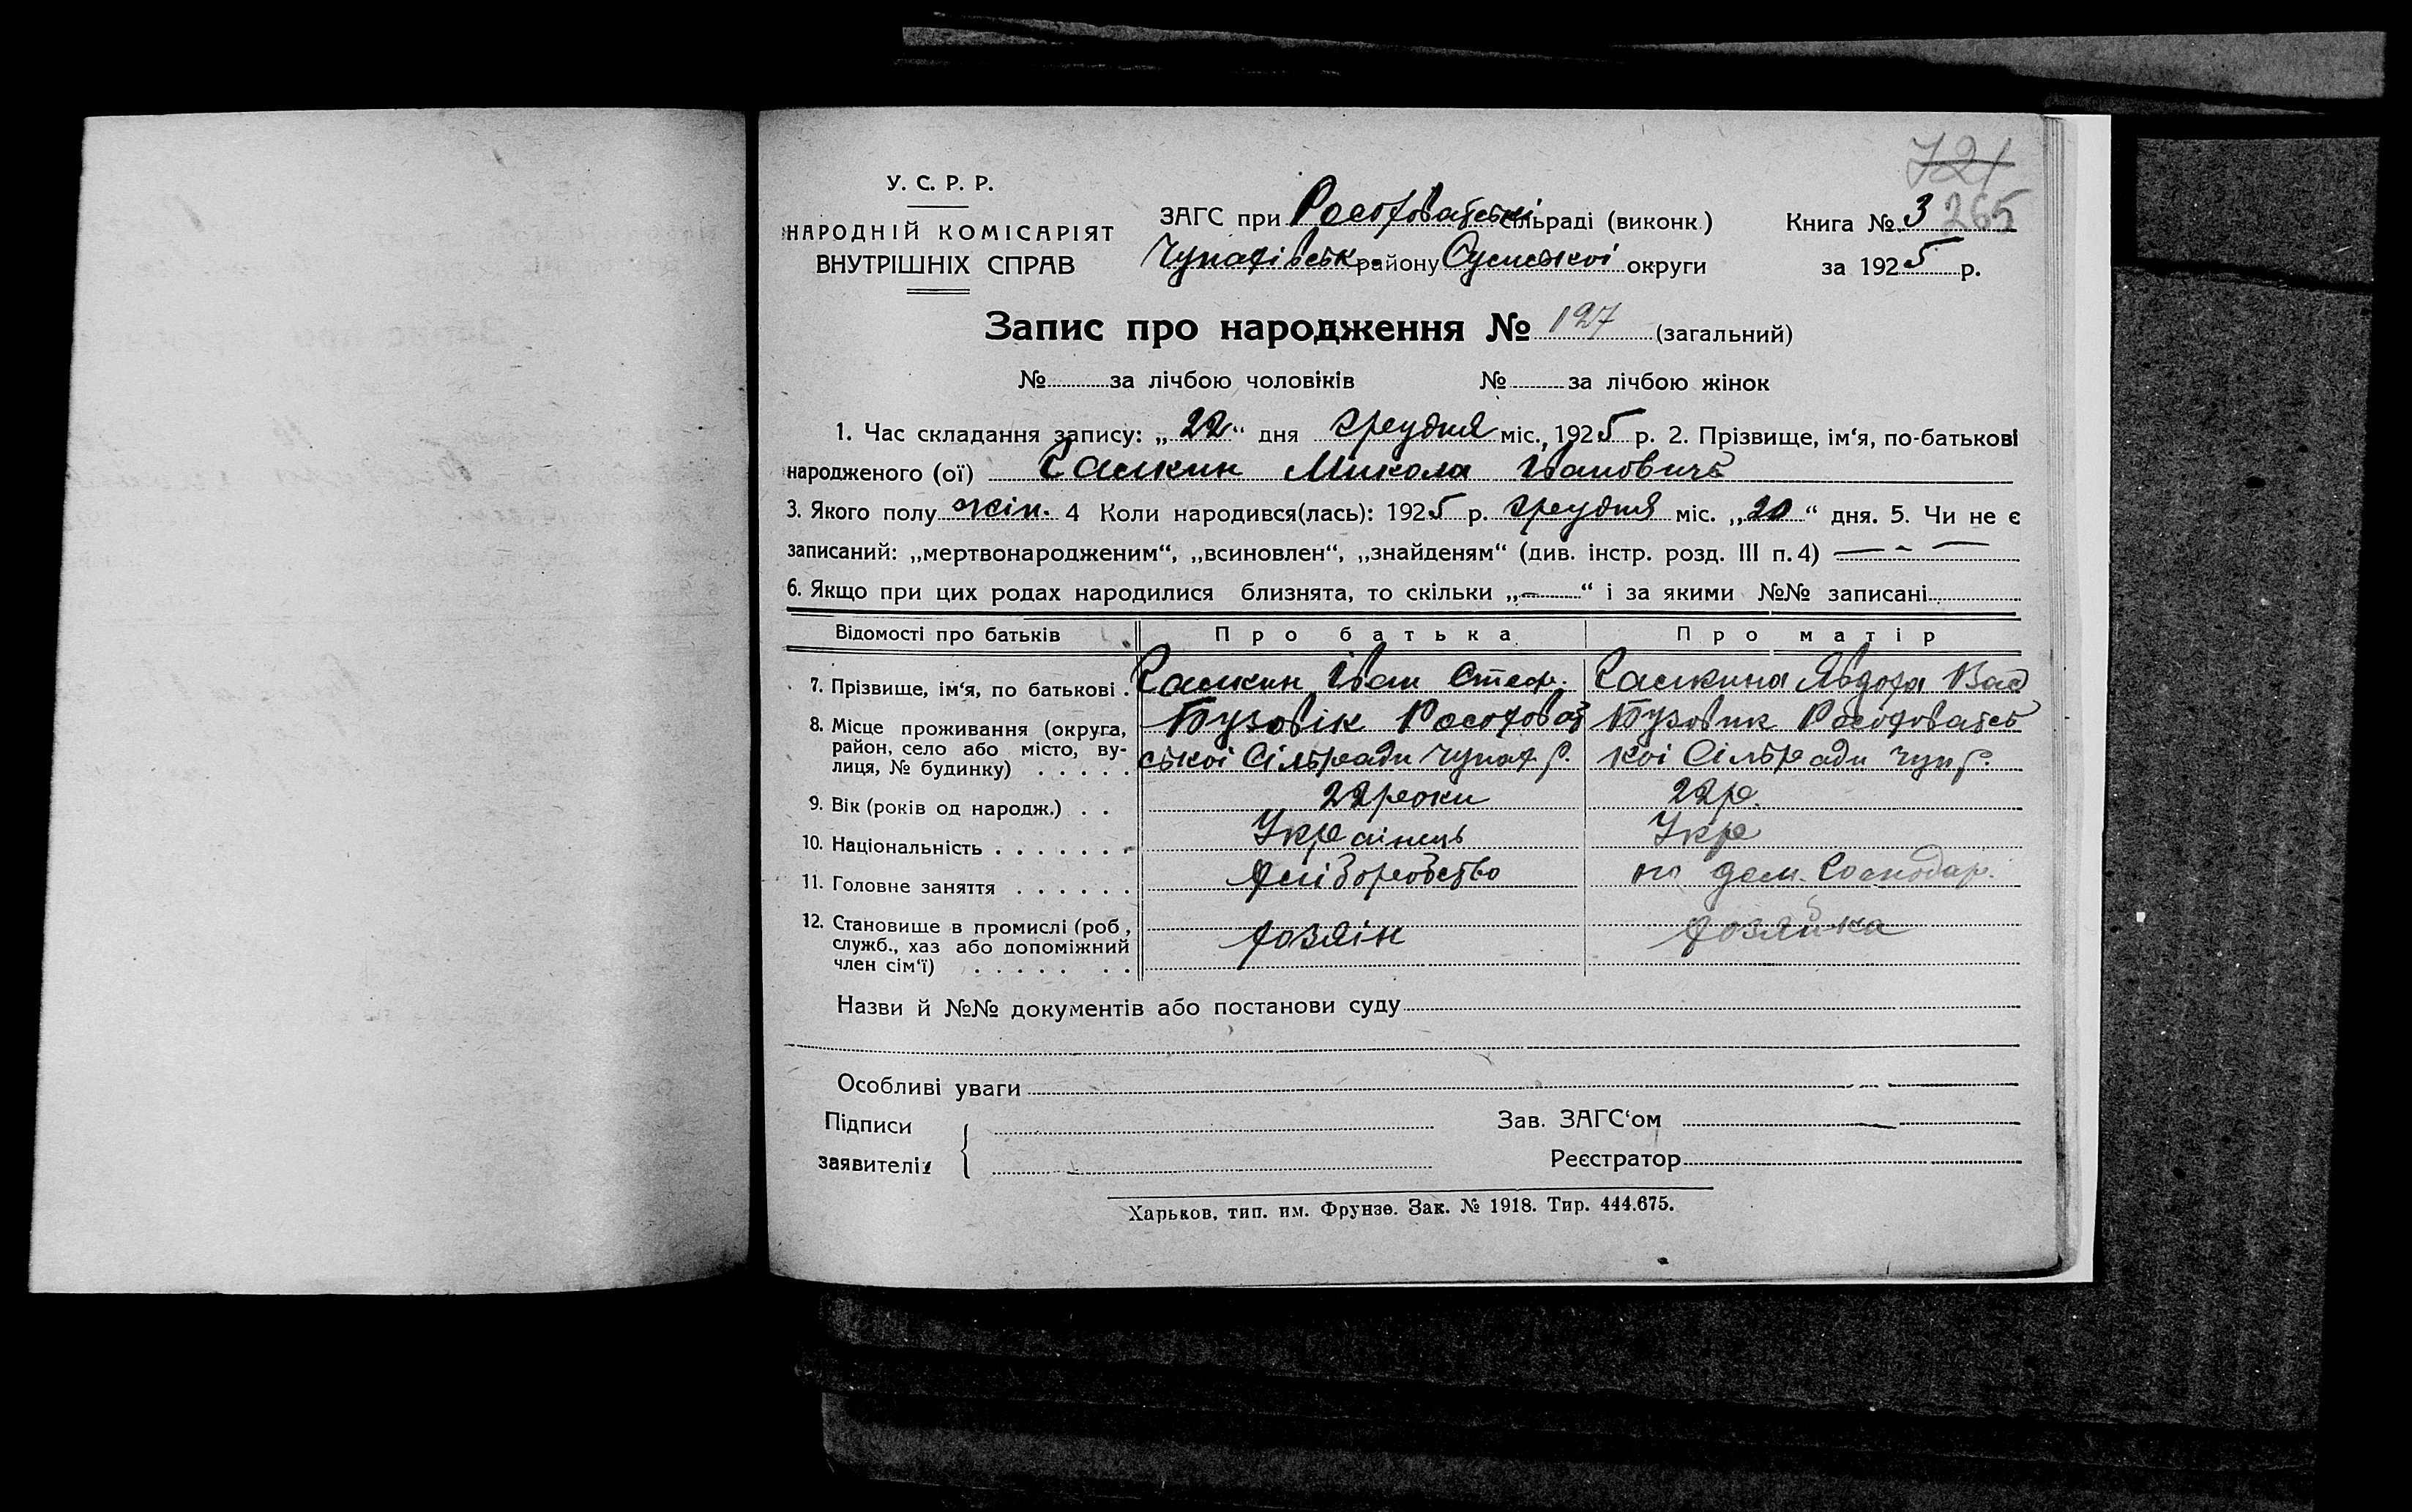 721
У. С. Р. Р.
ЗАГС при Рососоватські сільраді (виконк.) Книга № 3 265
НАРОДНІЙ КОМІСАРІЯТ
ВНУТРІШНІХ СПРАВ
Чупахівськ. району Сумської округи за 1925 р.
Запис про народження № 127 (загальний)
№ за лічбою чоловіків № за лічбою жінок
1. Час складання запису: „22“ дня грудня міс., 1925 р. 2. Прізвище, ім‘я, по-батькові
народженого (ої) Салкин Микола Іванович
3. Якого полу жін. 4 Коли народився(лась): 1925 р. грудня міс. „20“ дня. 5. Чи не є
записаний: „мертвонародженим“, „всиновлен“, „знайденям“ (див. інстр. розд. III п. 4) — - —
6. Якщо при цих родах народилися близнята, то скільки „—“ і за якими №№ записані
Відомості про батьків Про батька Про матір
7. Прізвище, ім‘я, по батькові . Салкин Іван Стеф. Салкина Явдоха Вас
8. Місце проживання (округа, Бузовік Рососоват Бузовик Рососоватсь
район, село або місто, ву- ської Сільради Чупах р. кої Сільради Чуп р.
лиця, № будинку) . . . . .
9. Вік (років од народж.) . . 22 роки 22 р.
10. Національність . . . . . . . Українець Укр
11. Головне заняття . . . . . . хліборобство по дом. Господар.
12. Становище в промислі (роб., хозяїн хозяйка
служб., хаз або допоміжний
член сім‘ї) . . . . . . .
Назви й №№ документів або постанови суду
Особливі уваги
Підписи Зав. ЗАГС‘ом
заявителів Реєстратор
Харьков, тип. им. Фрунзе. Зак. № 1918. Тир. 444.675.